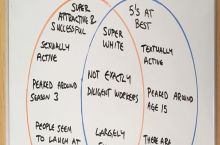 SUPER
ATTRACTIVE &
SUCCESSFUL
5's AT
BEST
SUPER
WHITE
SEXUALLY
ACTIVE
TEXTUALLY
ACTIVE
PEAKED AROUND
SEASON 3
NOT EXACTLY
DILIGENT WORKERS
PEAKED AROUND
AGE 15
PEOPLE SEEM
TO LAUGH AT
LARGELY
THERE ARE